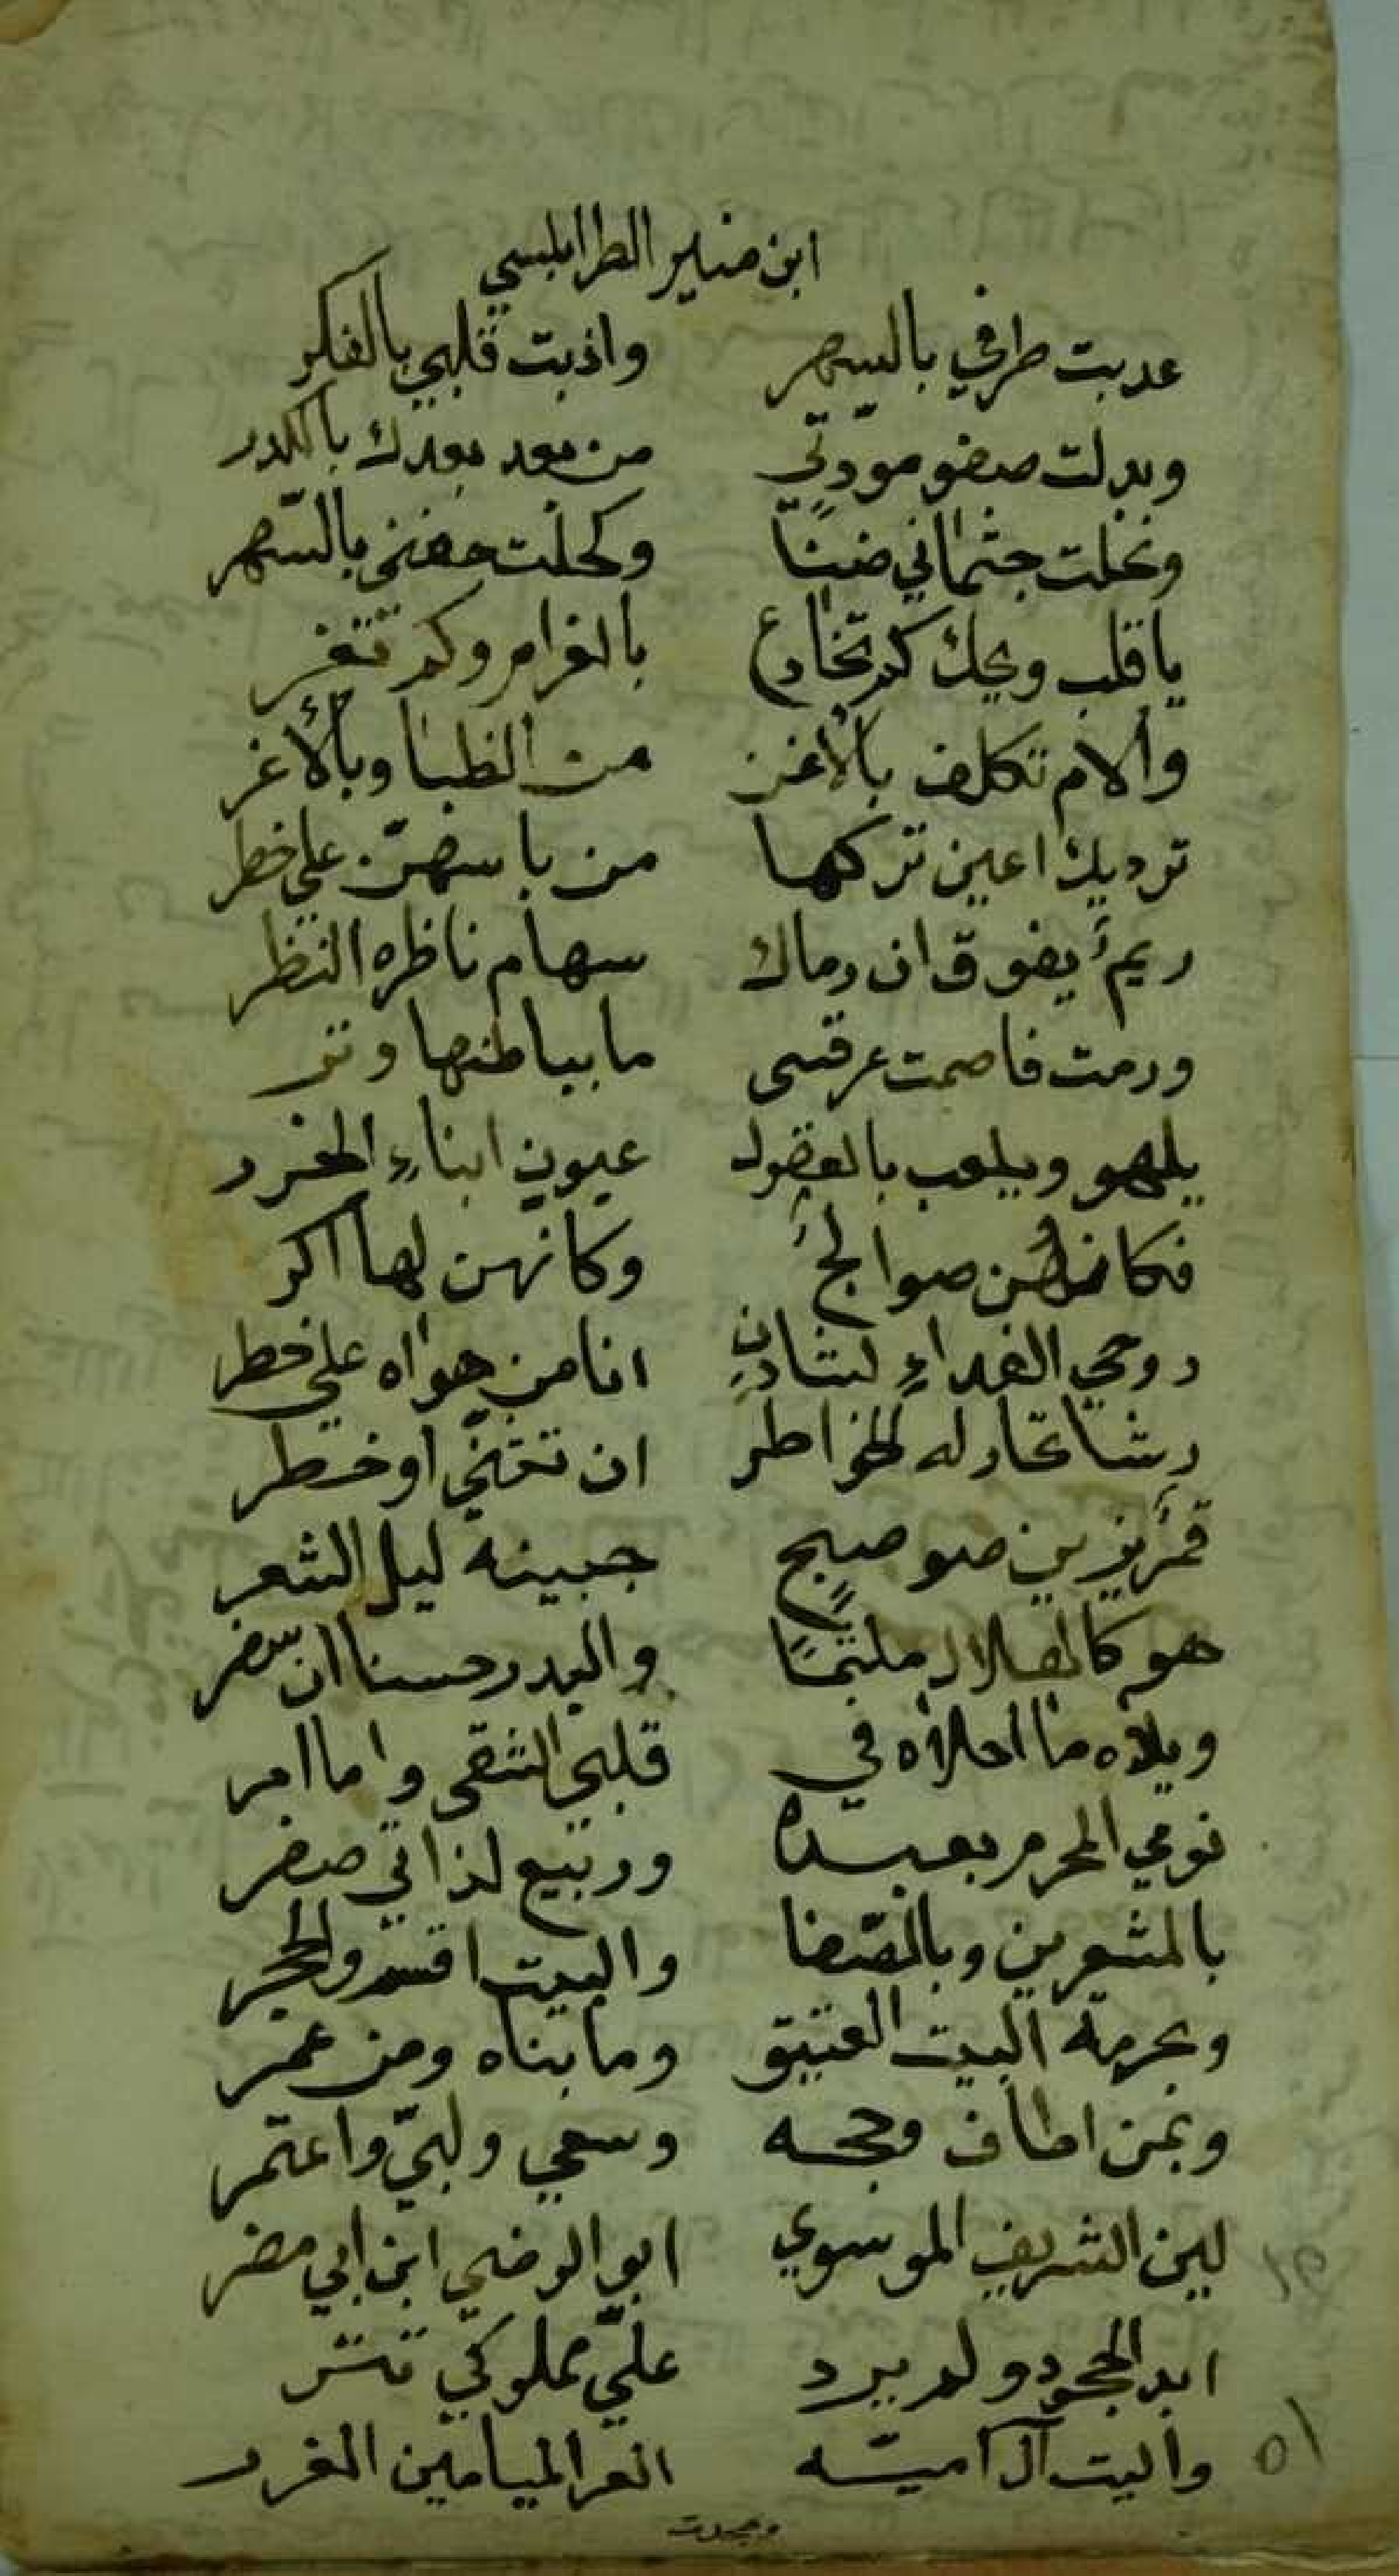 ابن منير الطرابلسي
عدبت طرفي بالسهر واذبت قلبي بالفكر
وبدلت صفو مودتي من بعد بعدك بالكدر
ونحلت جثماني ضنًا وكحلت جفني بالسّهر
يا قلب ويحك كم تخادع بالغرام وكم تغر
والام تكلف بالاغن من الظبا وبالأغر
ترديك اعين تركها من باسهنّ على خطر
ريم يفوق ان رماك سهام ناظره النظر
ورمت فاصمت عن قسى ما بباطنها وتر
يلهو ويلعب بالعقول عيون ابناء الخزر
فكانهن صوالج وكانهن لها اكر
روحي الفداء لشادنٍ انا من هواه على خطر
رشا تحار له الخواطر ان تثنى او خطر
قمر يزين ضو صبح جبينه ليل الشعر
هو كالهلال ملثمًا والبدر حسنا ان سفر
ويلاه ما احلاه في قلبي الشقى واما امر
نومي المحرم بعده وربيع لذاتي صفر
بالمشعرين وبالصفا والبيت اقسم والحجر
وبحرمة البيت العتيق وما بناه ومن عمر
وبمن اطاف وحجه وسعى ولبّي واعتمر
لين الشريف الموسوي ابو الرضي ابن ابي مضر
ابد الجحود ولم يرد عليّ مملوكي تتر
واليت آل امية الغر الميامين الغرر
وجحدت
١٥